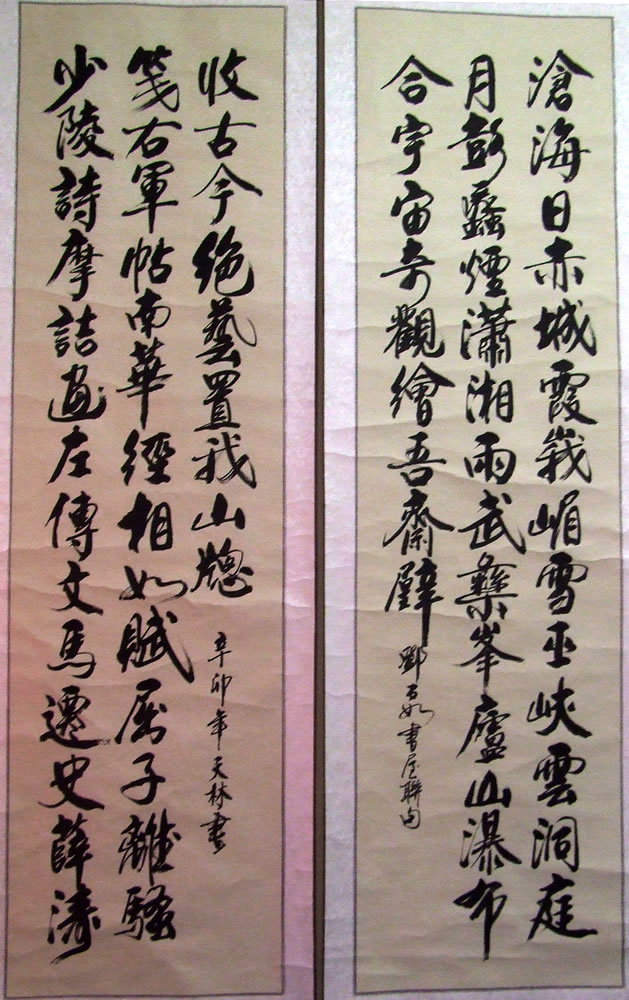 滄海日赤城霞峨嵋雪巫峽雲洞庭
月彭蠡煙瀟湘雨武彝峯廬山瀑布
合宇宙奇觀繪吾齋壁
鄧石如書屋聯句
少陵詩摩詰畫左傳文馬遷史薛濤
箋右軍帖南華經相如賦屈子離騷
收古今絕藝置我山牕
辛卯年天林書